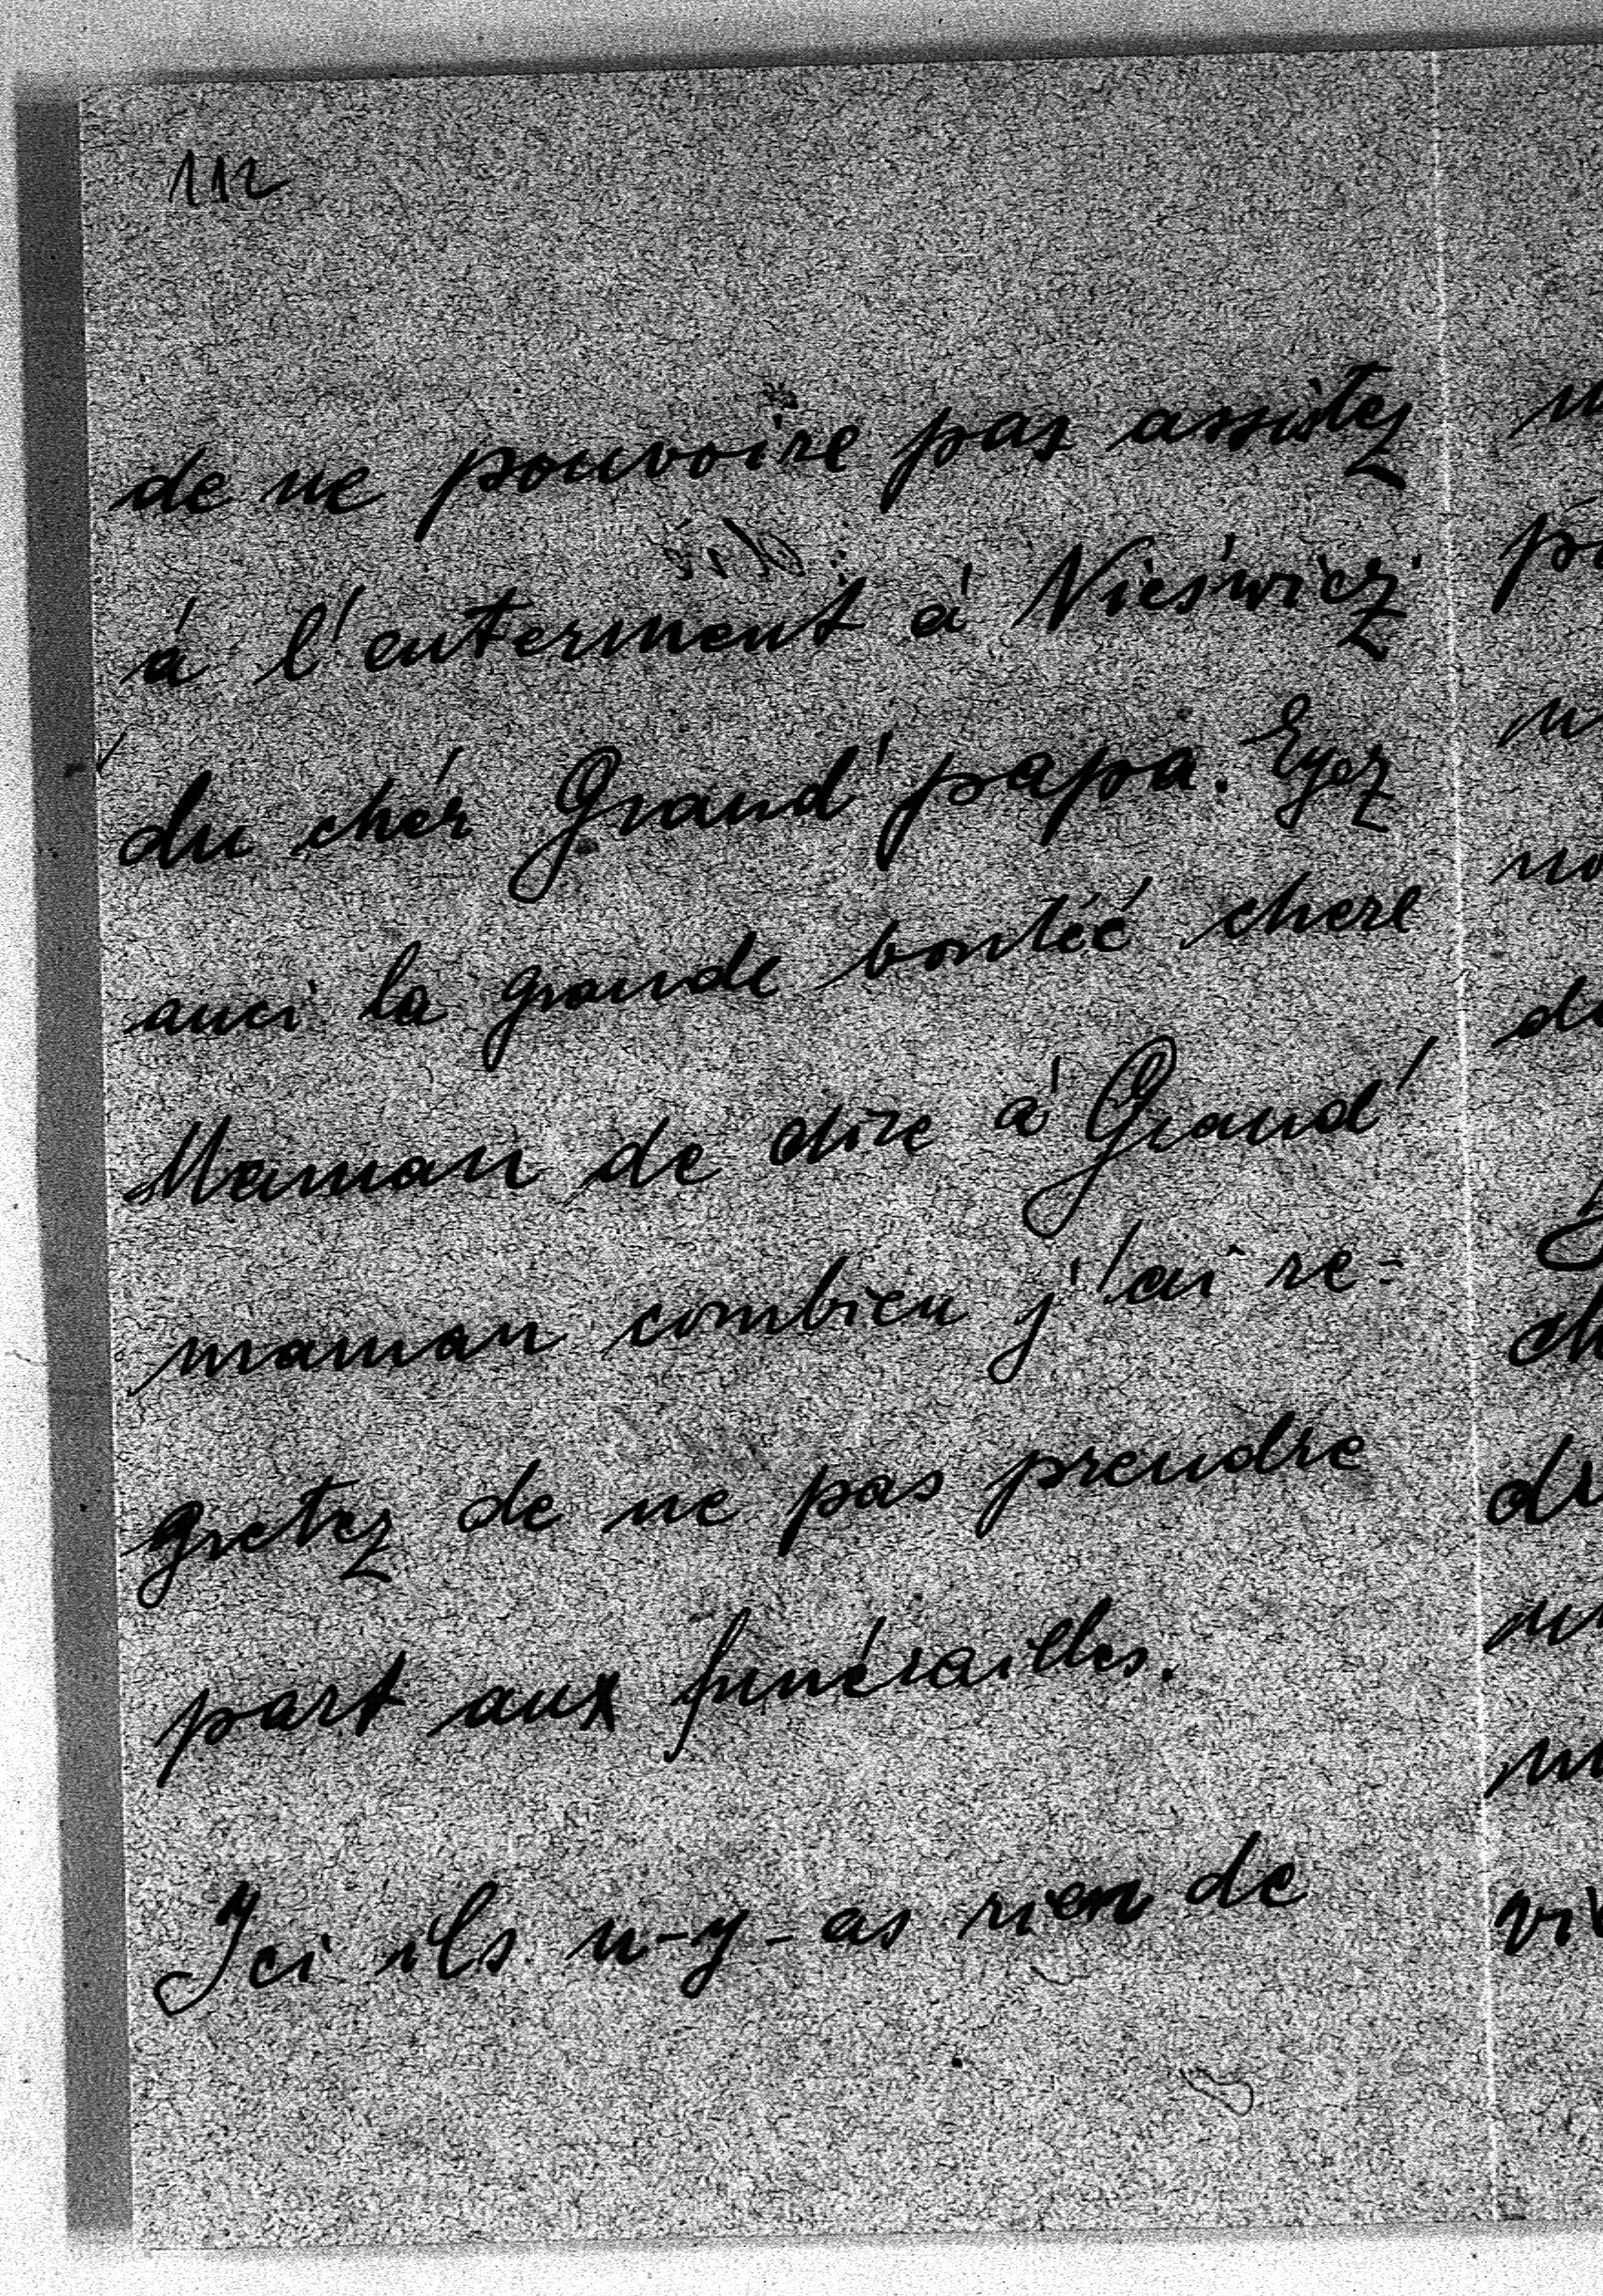 112
de ne pouvoire pas assistez
à l'enterment à Nieświez
du chér Grand'papa. Eyez
auci la grande bontéé chere
Maman de dire à Grand'
maman combien j'ai re=
gretez de ne pas prendre
part aux funérailles.
Ici ils n-y-as rien de